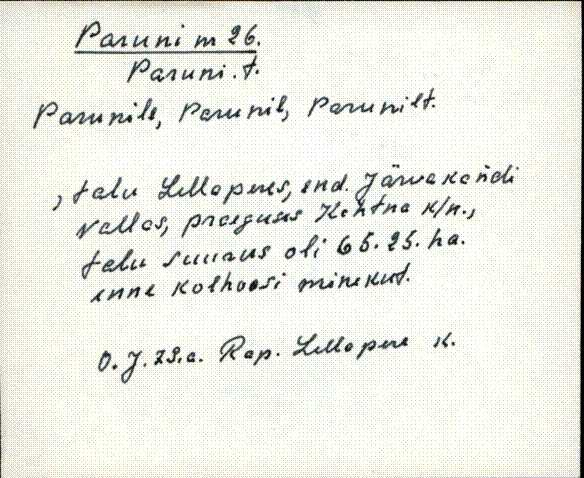 Paruni nr 26.
Paruni.t.
Parunile, Parunil, Parunilt.
, talu Lellaperes, end. Järvakandi
vallas, praeguses Kehtna k/n.,
talu suurus oli 65.25. ha.
enne kolhoosi minekut.
O.J. 79.a. Rap. Lellapere k.